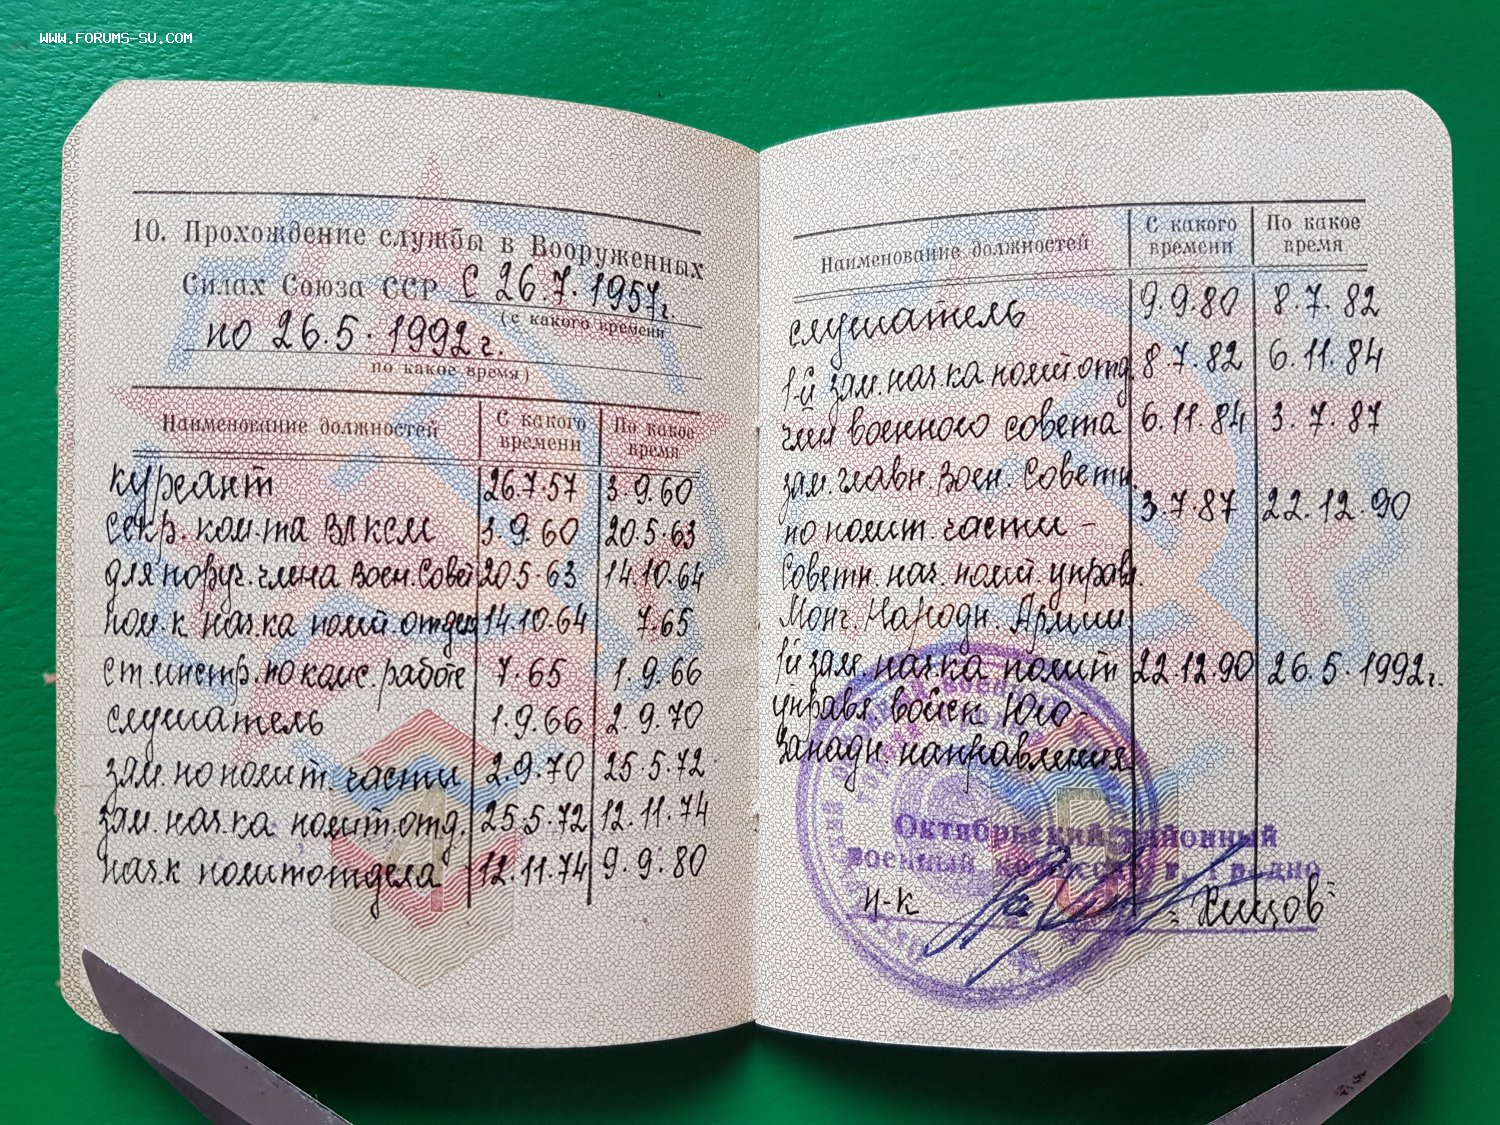 WWW.FORUMS-SU.COM
10. Прохождение службы в Вооруженных
Силах Союза ССР С 26.7.1957г.
(с какого времени
по 26.5.1992г.
по какое время)
Наименование должностей С какого времени По какое время
курсант 26.7.57 3.9.60
секр. ком.та ВЛКСМ 3.9.60 20.5.63
для поруч. члена воен. Совет 20.5.63 14.10.64
пом. к нач.ка полит. отдел 14.10.64 7.65
ст. инстр. по комс. работе 7.65 1.9.66
слушатель 1.9.66 2.9.70
зам. по полит. части 2.9.70 25.5.72
зам. нач.ка полит. отд. 25.5.72 12.11.74
нач.к политотдела 12.11.74 9.9.80
Наименование должностей С какого времени По какое время
слушатель 9.9.80 8.7.82
1-й зам. нач.ка полит. отд. 8.7.82 6.11.84
член военного совета 6.11.84 3.7.87
зам. главн. воен. Советн.
по полит. части - 3.7.87 22.12.90
Советн. нач. полит. управл.
Монг. Народн. Армии
1й зам. нач.ка полит 22.12.90 26.5.1992г.
управл. войск Юго-
западн. направления
Октябрьский районный
военный комиссар г. Гродно
п-к "Хищов"